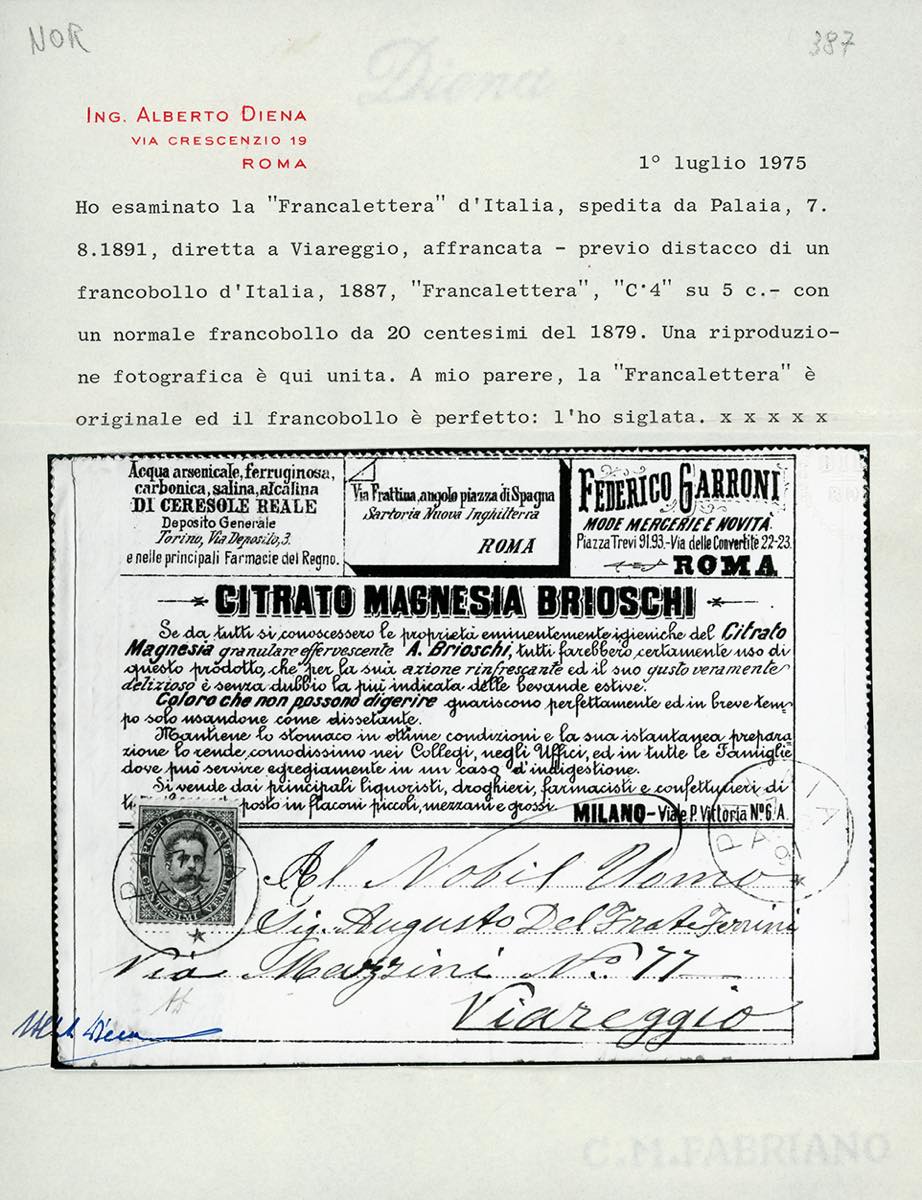 NOR
387
Diena
ING. ALBERTO DIENA
VIA CRESCENZIO 19
ROMA
1° luglio 1975
Ho esaminato la "Francalettera" d'Italia, spedita da Palaia, 7.
8.1891, diretta a Viareggio, affrancata - previo distacco di un
francobollo d'Italia, 1887, "Francalettera", "C·4" su 5 c.- con
un normale francobollo da 20 centesimi del 1879. Una riproduzio-
ne fotografica è qui unita. A mio parere, la "Francalettera" è
originale ed il francobollo è perfetto: l'ho siglata. x x x x x
Acqua arsenicale, ferruginosa,
carbonica, salina, alcalina
DI CERESOLE REALE
Deposito Generale
Torino, Via Deposito, 3.
e nelle principali Farmacie del Regno.
Via Frattina, angolo piazza di Spagna
Sartoria Nuova Inghilterra
ROMA
FEDERICO GARRONI
MODE MERCERIE E NOVITÀ
Piazza Trevi 91.93.-Via delle Convertite 22-23.
ROMA
CITRATO MAGNESIA BRIOSCHI
Se da tutti si conoscessero le proprietà eminentemente igieniche del Citrato
Magnesia granulare effervescente A. Brioschi, tutti farebbero certamente uso di
questo prodotto, che per la sua azione rinfrescante ed il suo gusto veramente
delizioso è senza dubbio la più indicata delle bevande estive.
Coloro che non possono digerire guariscono perfettamente ed in breve tem-
po solo usandone come dissetante.
Mantiene lo stomaco in ottime condizioni e la sua istantanea prepara-
zione lo rende comodissimo nei Collegi, negli Uffici, ed in tutte le Famiglie
dove può servire egregiamente in un caso d'indigestione.
Si vende dai principali liquoristi, droghieri, farmacisti e confettureri di
posto in flaconi piccoli, mezzani e grossi.
MILANO - Viale P. Vittoria Nº 6/A.
POSTE ITALIANE
CENTESIMI VENTI
Al Nobil Uomo
Sig. Augusto Del Frate Ferrini
Via Mazzini Nº 77
Viareggio
Diena
C.M.FABRIANO